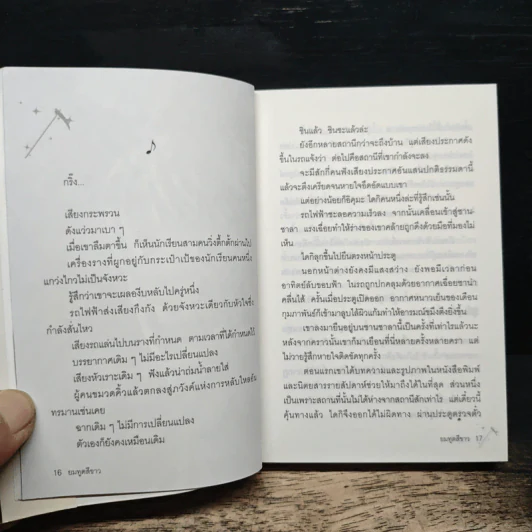 กริ๊ง...
เสียงกระพรวน
ดังแว่วมาเบา ๆ
เมื่อเขาลืมตาขึ้น ก็เห็นนักเรียนสามคนวิ่งตื๋อตัดผ่านไป
เครื่องรางที่ผูกอยู่กับกระเป๋าเป้ของนักเรียนคนหนึ่ง
แกว่งไกวไม่เป็นจังหวะ
รู้สึกว่าเขาจะเผลองีบหลับไปครู่หนึ่ง
รถไฟฟ้าส่งเสียงกึงกัง ด้วยจังหวะเดียวกับหัวใจซึ่ง
กำลังสั่นไหว
เสียงรถแล่นไปบนรางที่กำหนด ตามเวลาที่ได้กำหนดไว้
บรรยากาศเดิม ๆ ไม่มีอะไรเปลี่ยนแปลง
เสียงหัวเราะเดิม ๆ ฟังแล้วน่าถ่มน้ำลายใส่
ผู้คนขมวดคิ้วแล้วตกลงสู่ภวังค์แห่งการหลับใหลอัน
ทรมานเช่นเคย
ฉากเดิม ๆ ไม่มีการเปลี่ยนแปลง
ตัวเองก็ยังคงเหมือนเดิม
16 ยมทูตสีขาว
ชินแล้ว ชินซะแล้วล่ะ
ยังอีกหลายสถานีกว่าจะถึงบ้าน แต่เสียงประกาศดัง
ขึ้นในรถแจ้งว่า ต่อไปคือสถานีที่เขากำลังจะลง
จะมีสักกี่คนฟังเสียงประกาศอันแสนปกติธรรมดานี้
แล้วจะตึงเครียดจนหายใจอึดอัดแบบเขา
แต่อย่างน้อยก็อิคุมะ ไดกิคนหนึ่งล่ะที่รู้สึกเช่นนั้น
รถไฟฟ้าชะลอความเร็วลง จากนั้นเคลื่อนเข้าสู่ชาน-
ชาลา แรงเฉื่อยทำให้ร่างของเขาคล้ายถูกดึงด้วยมือที่มองไม่
เห็น
ไดกิลุกขึ้นไปยืนตรงหน้าประตู
นอกหน้าต่างยังคงมีแสงสว่าง ยังพอมีเวลาก่อน
อาทิตย์ลับขอบฟ้า ในรถถูกปกคลุมด้วยอากาศเฉื่อยชาน่า
คลื่นไส้ ครั้นเมื่อประตูเปิดออก อากาศหนาวเย็นของเดือน
กุมภาพันธ์ก็เข้ามาลูบไล้ผิวแก้มทำให้อารมณ์ขมึงตึงยิ่งขึ้น
เขาลงมายืนอยู่บนชานชาลานี้เป็นครั้งที่เท่าไรแล้วนะ
หลังจากคราวนั้นเขาก็มาเยือนที่นี่หลายครั้งหลายครา แต่
ไม่วายรู้สึกหายใจติดขัดทุกครั้ง
ตอนแรกเขาได้บทความและรูปภาพในหนังสือพิมพ์
และนิตยสารรายสัปดาห์ช่วยให้มาถึงได้ในที่สุด ส่วนหนึ่ง
เป็นเพราะสถานที่นั้นไม่ได้ห่างจากสถานีสักเท่าไร แต่เดี๋ยวนี้
คุ้นทางแล้ว ไดกิจึงออกได้ไม่ผิดทาง ผ่านประตูตรวจตั๋ว
ยมทูตสีขาว 17